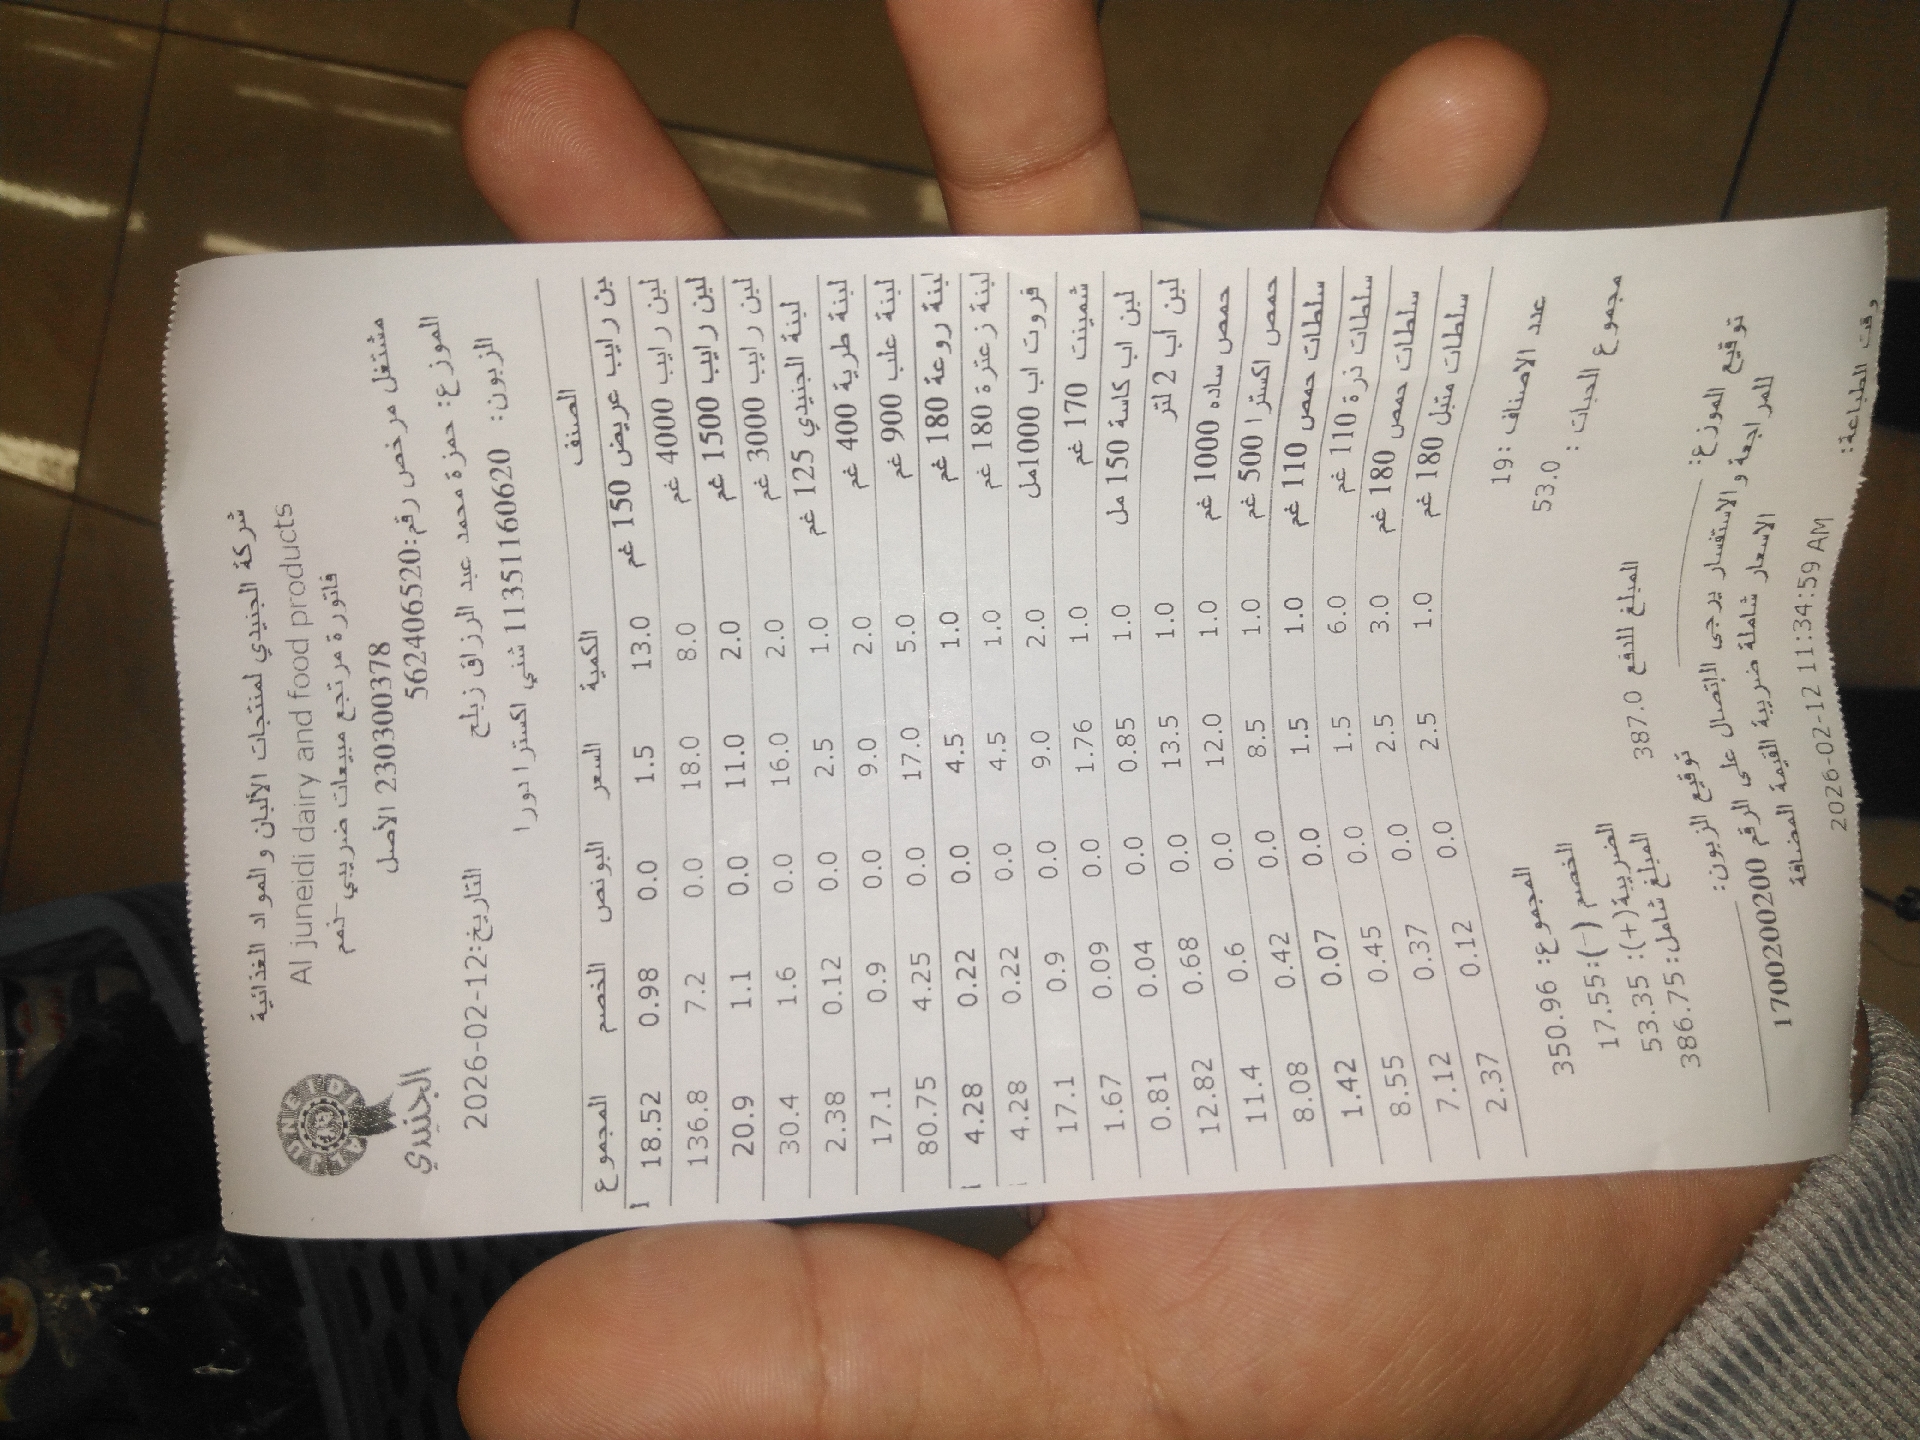 شركة الجنيدي لمنتجات الألبان و المواد الغذائية
Al juneidi dairy and food products
فاتورة مرتجع مبيعات ضريبي -نمم
230300378 الأصل
مشتغل مرخص رقم:562406520
AL JUNEIDI
الجنيدي
الموزع: حمزة محمد عبد الرزاق زبلح
التاريخ:2026-02-12
الزبون: 11351160620 شني اكسترا دورا
الصنف الكمية السعر البونص الخصم المجموع
بن رايب عريض 150 غم 13.0 1.5 0.0 0.98 18.52
لبن رايب 4000 غم 8.0 18.0 0.0 7.2 136.8
لبن رايب 1500 غم 2.0 11.0 0.0 1.1 20.9
لبن رايب 3000 غم 2.0 16.0 0.0 1.6 30.4
لبنة الجنيدي 125 غم 1.0 2.5 0.0 0.12 2.38
لبنة طرية 400 غم 2.0 9.0 0.0 0.9 17.1
لبنة علب 900 غم 5.0 17.0 0.0 4.25 80.75
لبنة روعة 180 غم 1.0 4.5 0.0 0.22 4.28
لبنة زعترة 180 غم 1.0 4.5 0.0 0.22 4.28
فروت اب 1000مل 2.0 9.0 0.0 0.9 17.1
شمينت 170 غم 1.0 1.76 0.0 0.09 1.67
لبن اب كاسة 150 مل 1.0 0.85 0.0 0.04 0.81
لبن أب 2 لتر 1.0 13.5 0.0 0.68 12.82
حمص ساده 1000 غم 1.0 12.0 0.0 0.6 11.4
حمص اكسترا 500 غم 1.0 8.5 0.0 0.42 8.08
سلطات حمص 110 غم 1.0 1.5 0.0 0.07 1.42
سلطات ذرة 110 غم 6.0 1.5 0.0 0.45 8.55
سلطات حمص 180 غم 3.0 2.5 0.0 0.37 7.12
سلطات متبل 180 غم 1.0 2.5 0.0 0.12 2.37
عدد الاصناف :19
المجموع: 350.96
53.0
مجموع الحبات :
الخصم (-):17.55
الضريبة(+): 53.35
المبلغ للدفع 387.0
المبلغ شامل: 386.75
توقيع الموزع:
توقيع الزبون:
للمراجعة والاستفسار يرجى الإتصال على الرقم 1700200200
الاسعار شاملة ضريبة القيمة المضافة
وقت الطباعة:
2026-02-12 11:34:59 AM